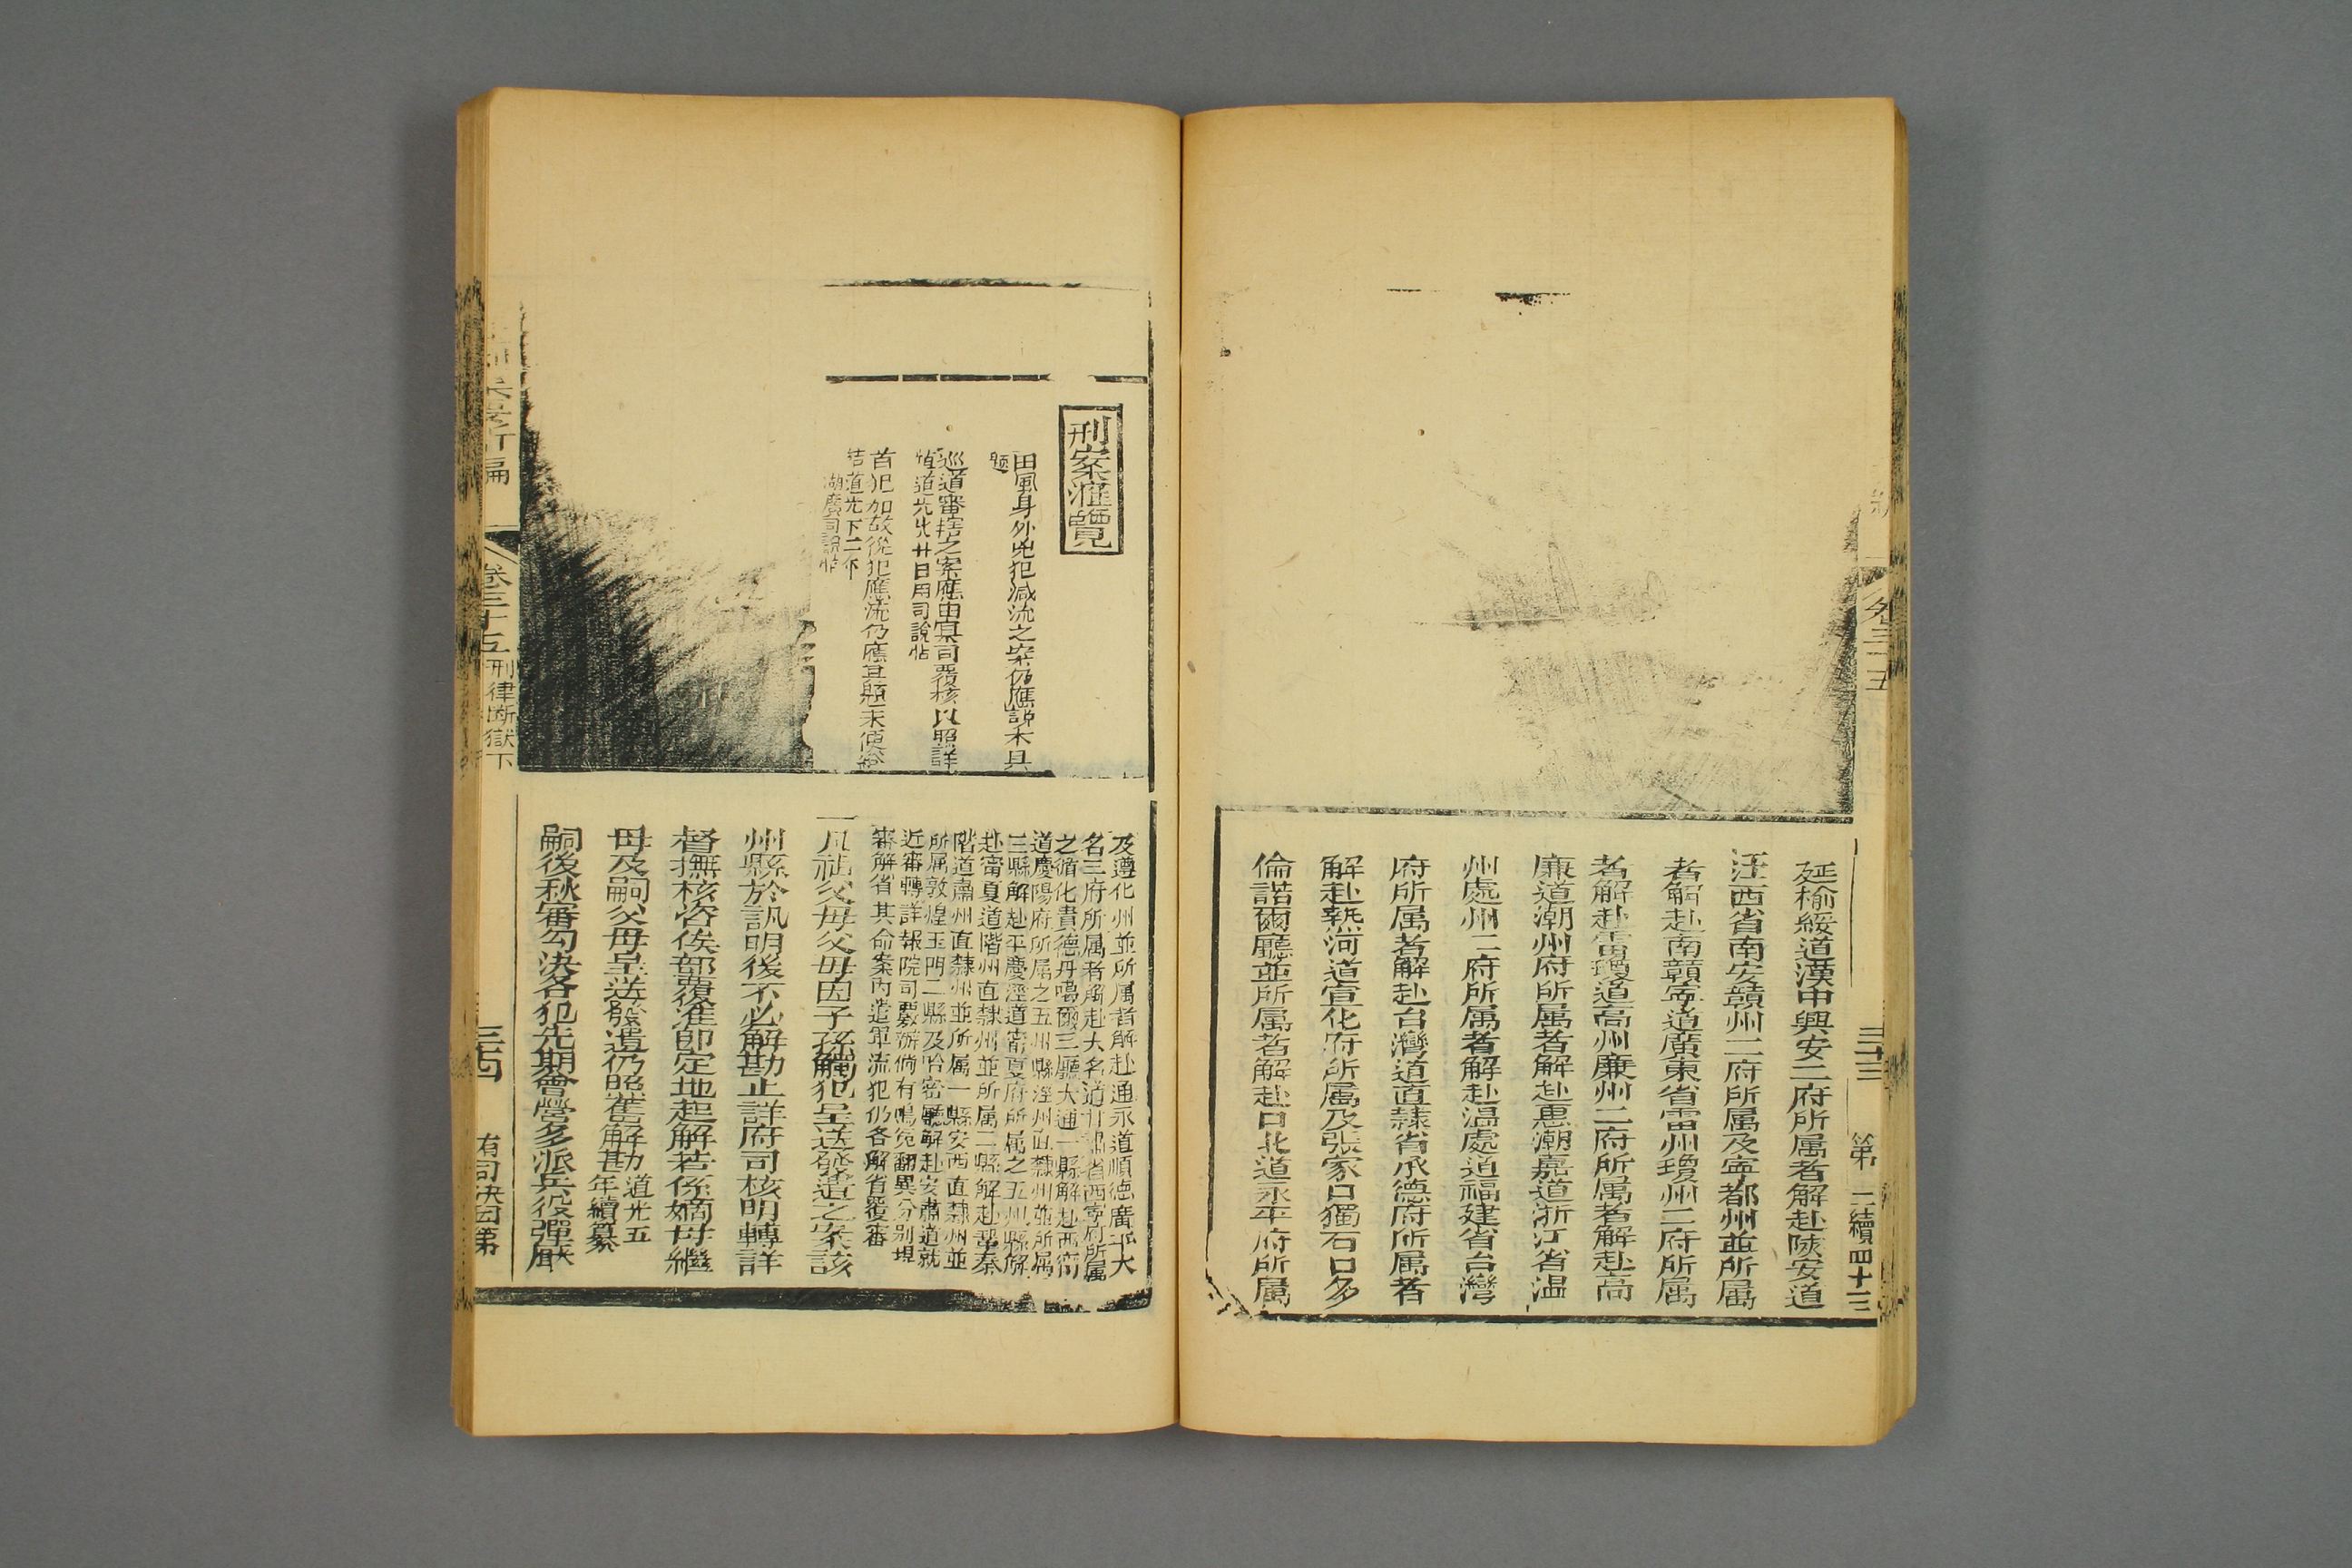 卷三十五
三十三
第
二續四十三
延榆綏道漢中興安二府所属者解赴陝安道
江西省南安贛州二府所属及寧都州並所属
者解赴南贛寧道廣東省雷州瓊州二府所属
者解赴雷瓊道高州廉州二府所属者解赴高
廉道潮州府所属者解赴惠潮嘉道浙江省温
州處州二府所属者解赴温處道福建省台灣
府所属者解赴台灣道直隸省承德府所属者
解赴熱河道宣化府所属及張家口獨石口多
倫諾爾廳並所属者解赴口北道永平府所属
刑案滙覽
田風身外兇犯減流之案仍應
題
巡道審
之案應由臬司覆核
照詳
道光
廿日
司說帖
首犯
故從犯應流仍應
題未便咨
結道光
下
湖廣司說帖
及遵化州並所属者解赴通永道順德廣平大
名三府所属者解赴大名道甘肅省西寧府所属
之循化貴德丹噶爾三廳大通一縣解赴西寧
道慶陽府所属之五州縣涇州直隸州並所属
三縣解赴平慶涇道寧夏府所属之五州縣解
赴寧夏道階州直隸州並所属二縣解赴鞏秦
階道肅州直隸州並所属一縣安西直隸州並
所属敦煌玉門二縣及哈密廳解赴安肅道就
近審轉詳報院司覈辦倘有鳴冤翻異分别提
審解省其命案內遣軍流犯仍各解省覆審
一凡祖父母父母因子孫觸犯呈送發遣之案該
州縣於訊明後不必解勘止詳府司核明轉詳
督撫核咨俟部覆准即定地起解若係嫡母繼
母及嗣父母呈送發遣仍照舊解勘道光五
年續纂
嗣後秋審勾決各犯先期會營多派兵役彈厭
卷三十五
刑律斷獄下
三四
有司決囚等第